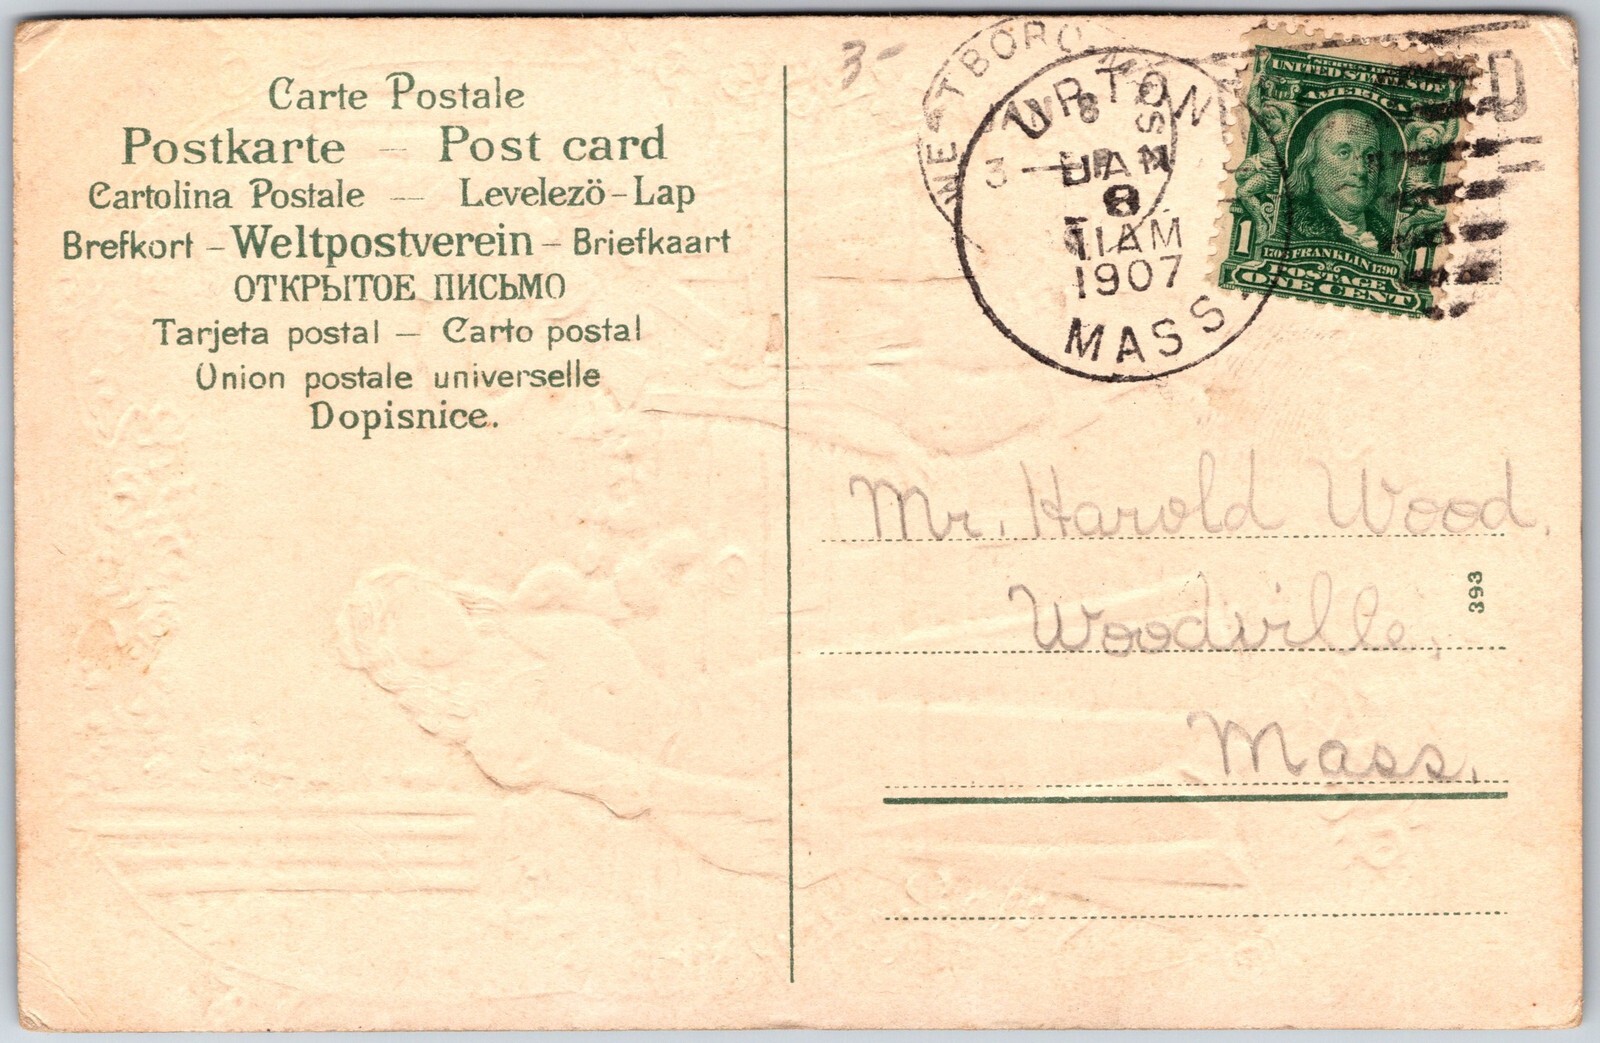 Carte Postale
Postkarte – Post card
Cartolina Postale — Levelezö-Lap
Brefkort – Weltpostverein – Briefkaart
ОТКРЫТОЕ ПИСЬМО
Tarjeta postal — Carto postal
Union postale universelle
Dopisnice.
3-
WESTBORO
MASS
UPTON
JAN
8
11AM
1907
MASS.
SERIES
UNITED STATES OF
AMERICA
1 1
1706 FRANKLIN 1790
POSTAGE
ONE CENT
Mr. Harold Wood,
Woodville,
Mass.
393